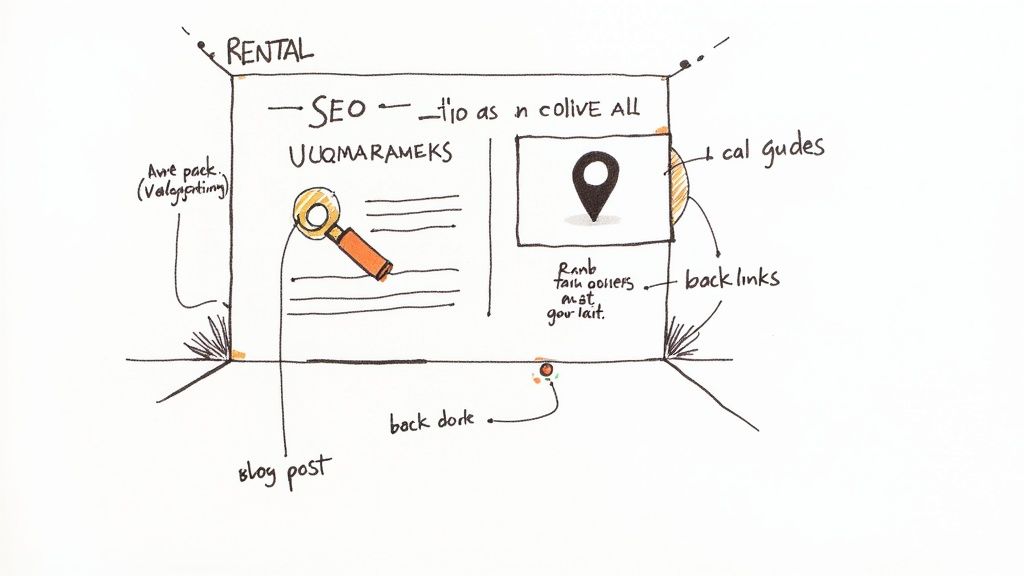 RENTAL
SEO
tio as n COLIVE ALL
UUQMARAMEKS
Avre pack.
cal gudes
Ranb
mat
gour lait.
backlinks
back dork
Blog post